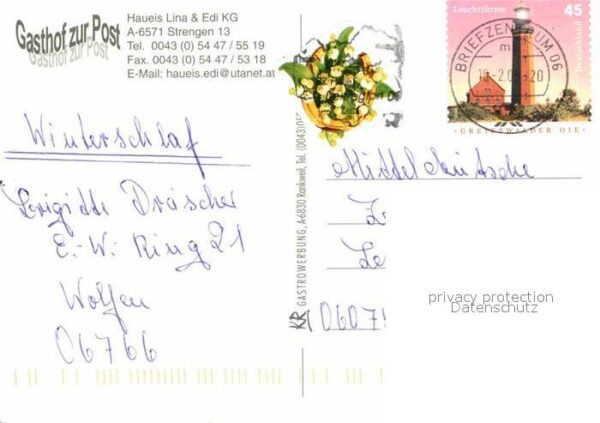 Gasthof zur Post
Gasthof zur Post
Haueis Lina & Edi KG
A-6571 Strengen 13
Tel. 0043 (0) 54 47 / 55 19
Fax. 0043 (0) 54 47 / 53 18
E-Mail: haueis.edi@utanet.at
Winterschlaf
Brigitte Dräscher
E.-W. Ring 21
Wolfen
06766
KR GASTROWERBUNG, A-6830 Rankweil, Tel. (0043)
Leuchttürme 45
Deutschland
BRIEFZENTRUM 06
GREIFSWALDER OIE
Mitteldeutsche
Z
Le
0607
privacy protection
Datenschutz